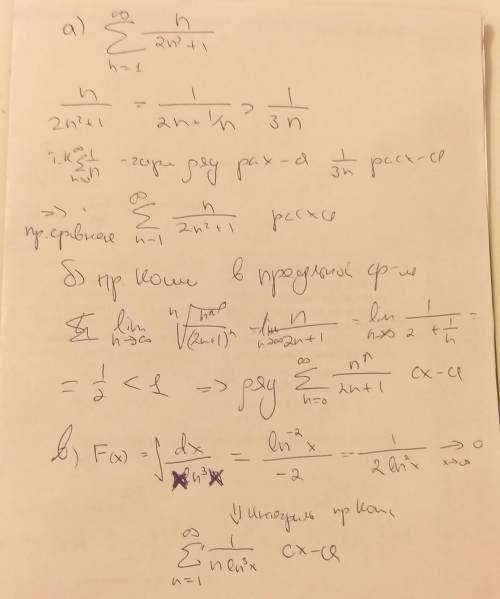 а) ∑_{n=1}^{∞} n/(2n²+1)
n/(2n²+1) = 1/(2n+1/n) > 1/(3n)
т.к ∑_{n=0}^{∞} 1/n - гарм ряд рах-я 1/(3n) расх-ся
=> пр.сравнения ∑_{n=1}^{∞} n/(2n²+1) расхся
б) пр Коши в предельной ф-ме
lim_{n→∞} ⁿ√(nⁿ/(2n+1)ⁿ) = lim_{n→∞} n/(2n+1) = lim_{n→∞} 1/(2+1/n) =
= 1/2 < 1 => ряд ∑_{n=0}^{∞} nⁿ/(2n+1) сх-ся
в) F(x) = ∫ dx/(ln³) = ln⁻²x/(-2) = -1/(2ln²x) → 0 x→∞
⇓ Интеграль пр Коши
∑_{n=1}^{∞} 1/(n ln³x) сх-ся